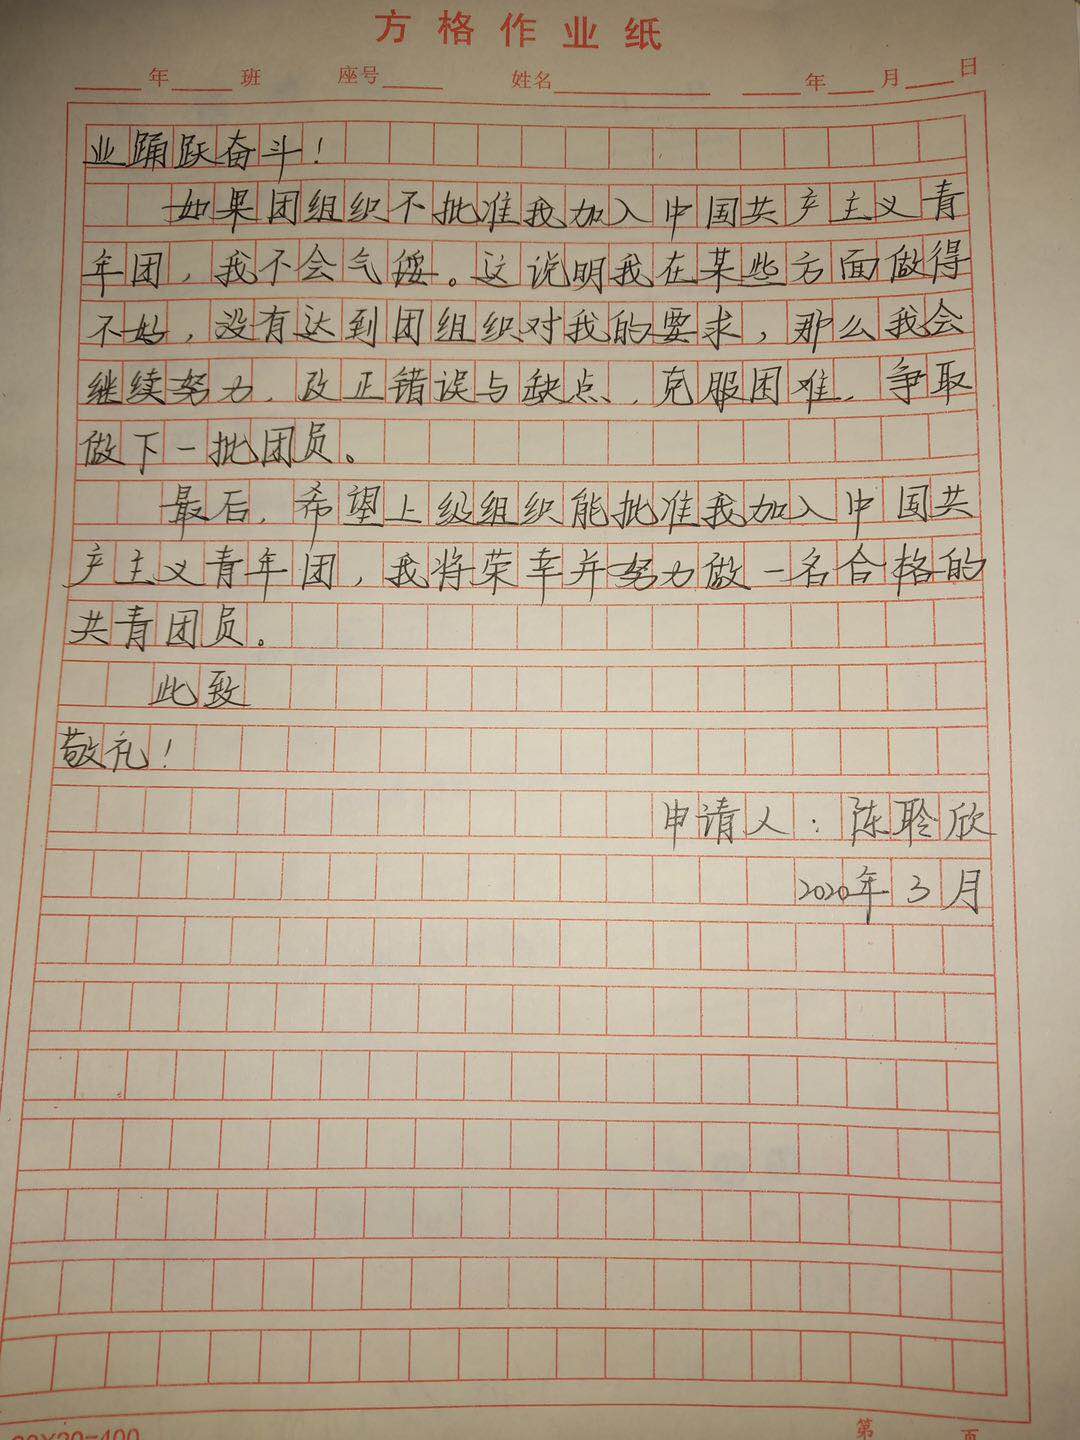 方格作业纸
年 班 座号 姓名 年 月 日
业踊跃奋斗！
如果团组织不批准我加入中国共产主义青
年团，我不会气馁。这说明我在某些方面做得
不好，没有达到团组织对我的要求，那么我会
继续努力，改正错误与缺点，克服困难，争取
做下一批团员。
最后，希望上级组织能批准我加入中国共
产主义青年团，我将荣幸并努力做一名合格的
共青团员。
此致
敬礼！
申请人：陈聆欣
2020年3月
第 页